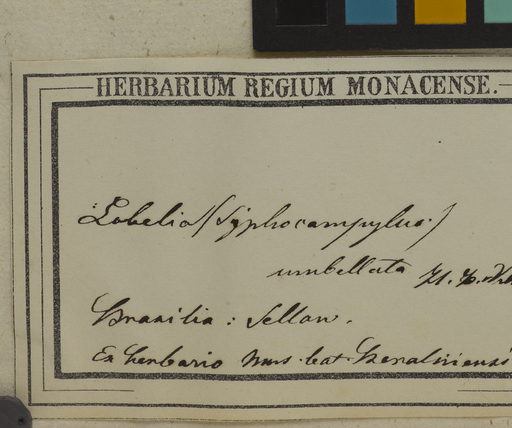 HERBARIUM REGIUM MONACENSE.
Lobelia (Siphocampylus.)
umbellata H. B.
Brasilia: Sellow.
Ex herbario Mus. bot. Berolinensi